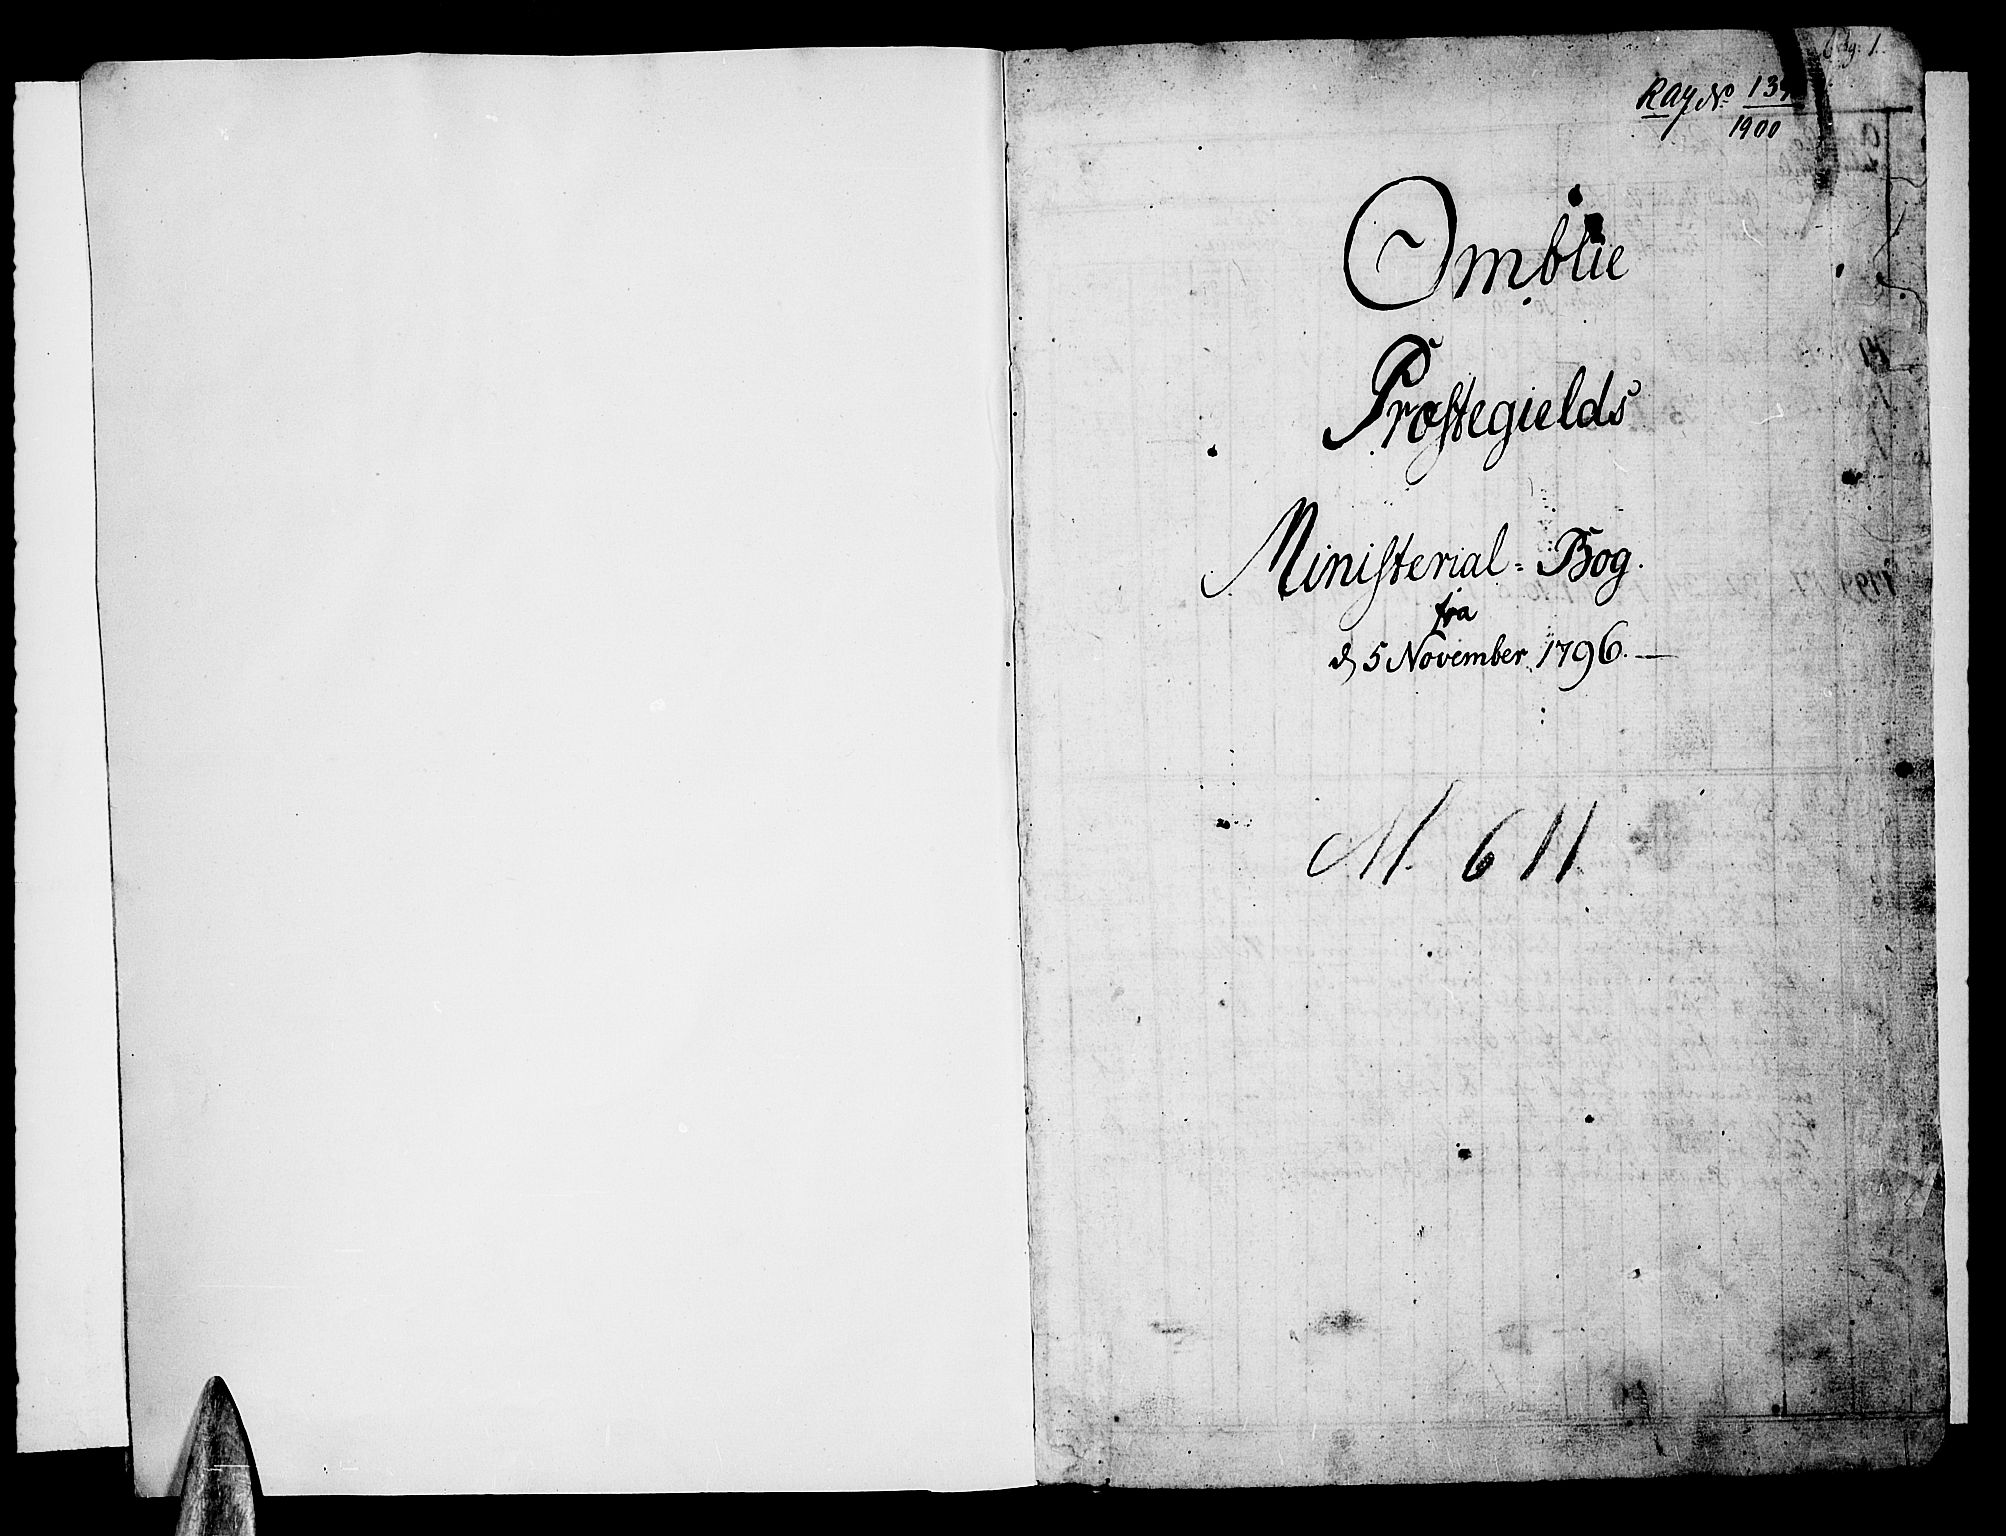 Pag: 1.
Ray No
1900
Omblie
Præstegields
Ministerial-Bog.
fra
d 5 November 1796.
M. 611